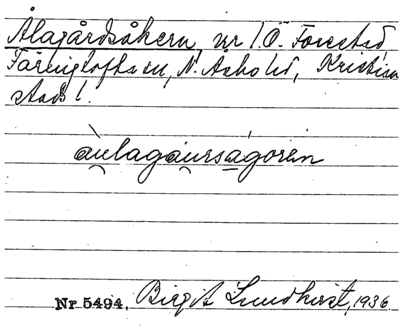 Ålagårdsåkern, ur 1 Ö. Forestad,
Färingtofta sn, N. Åsbo hd, Kristian
stads l.
àulagàursàgoren
Nr 5494. Birgit Lundkvist, 1936.